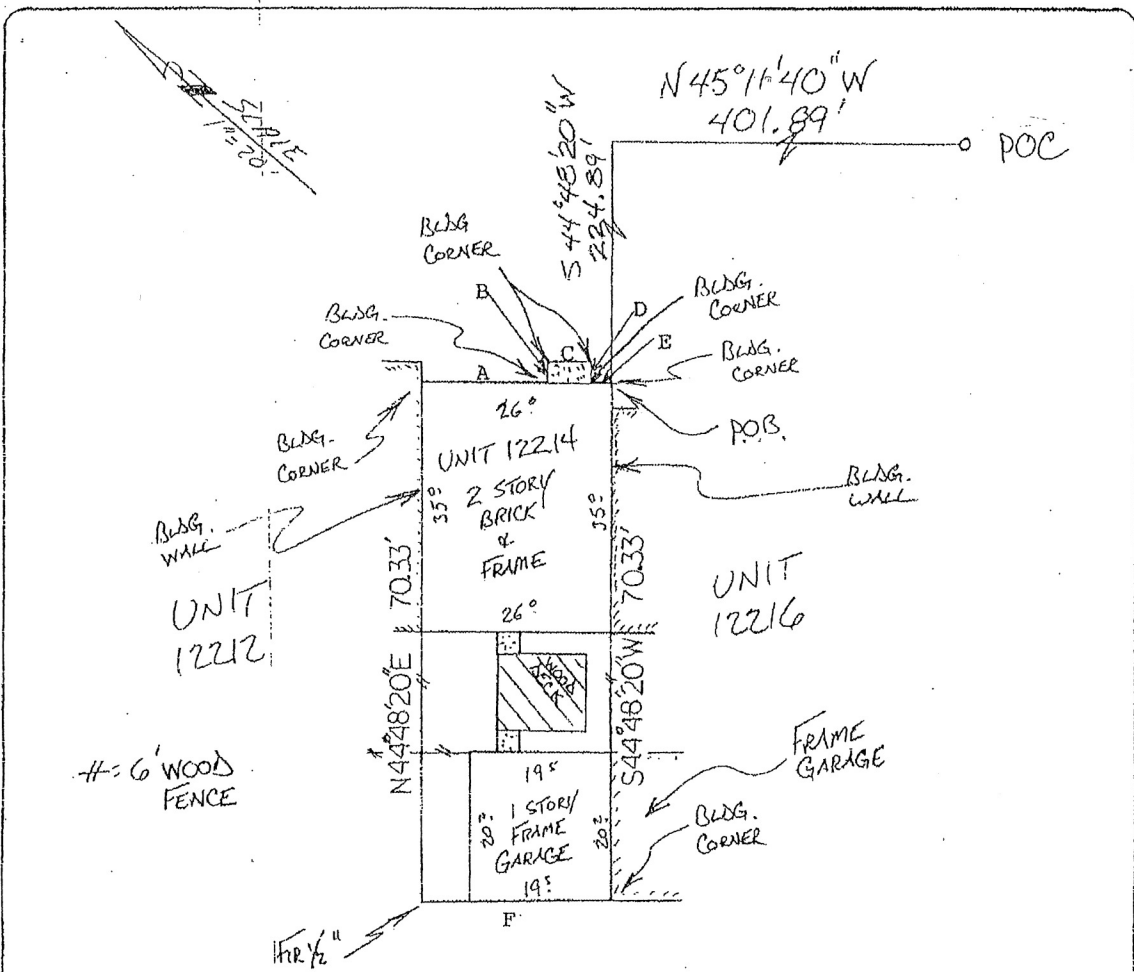 SCALE
1"=20'
N45°11'40"W
401.89'
POC
S 44°48'20"W
224.89'
BLDG
CORNER
B
BLDG.
CORNER
A
C
D
BLDG.
CORNER
E
BLDG.
CORNER
26⁰
P.O.B.
BLDG.
CORNER
UNIT 12214
2 STORY
BRICK
&
FRAME
BLDG.
WALL
BLDG.
WALL
70.33'
70.33'
UNIT
12212
UNIT
12216
26⁰
WOOD
DECK
N44°48'20"E
S44°48'20"W
= 6' WOOD
FENCE
FRAME
GARAGE
19⁵
1 STORY
FRAME
GARAGE
BLDG.
CORNER
F
1/2"